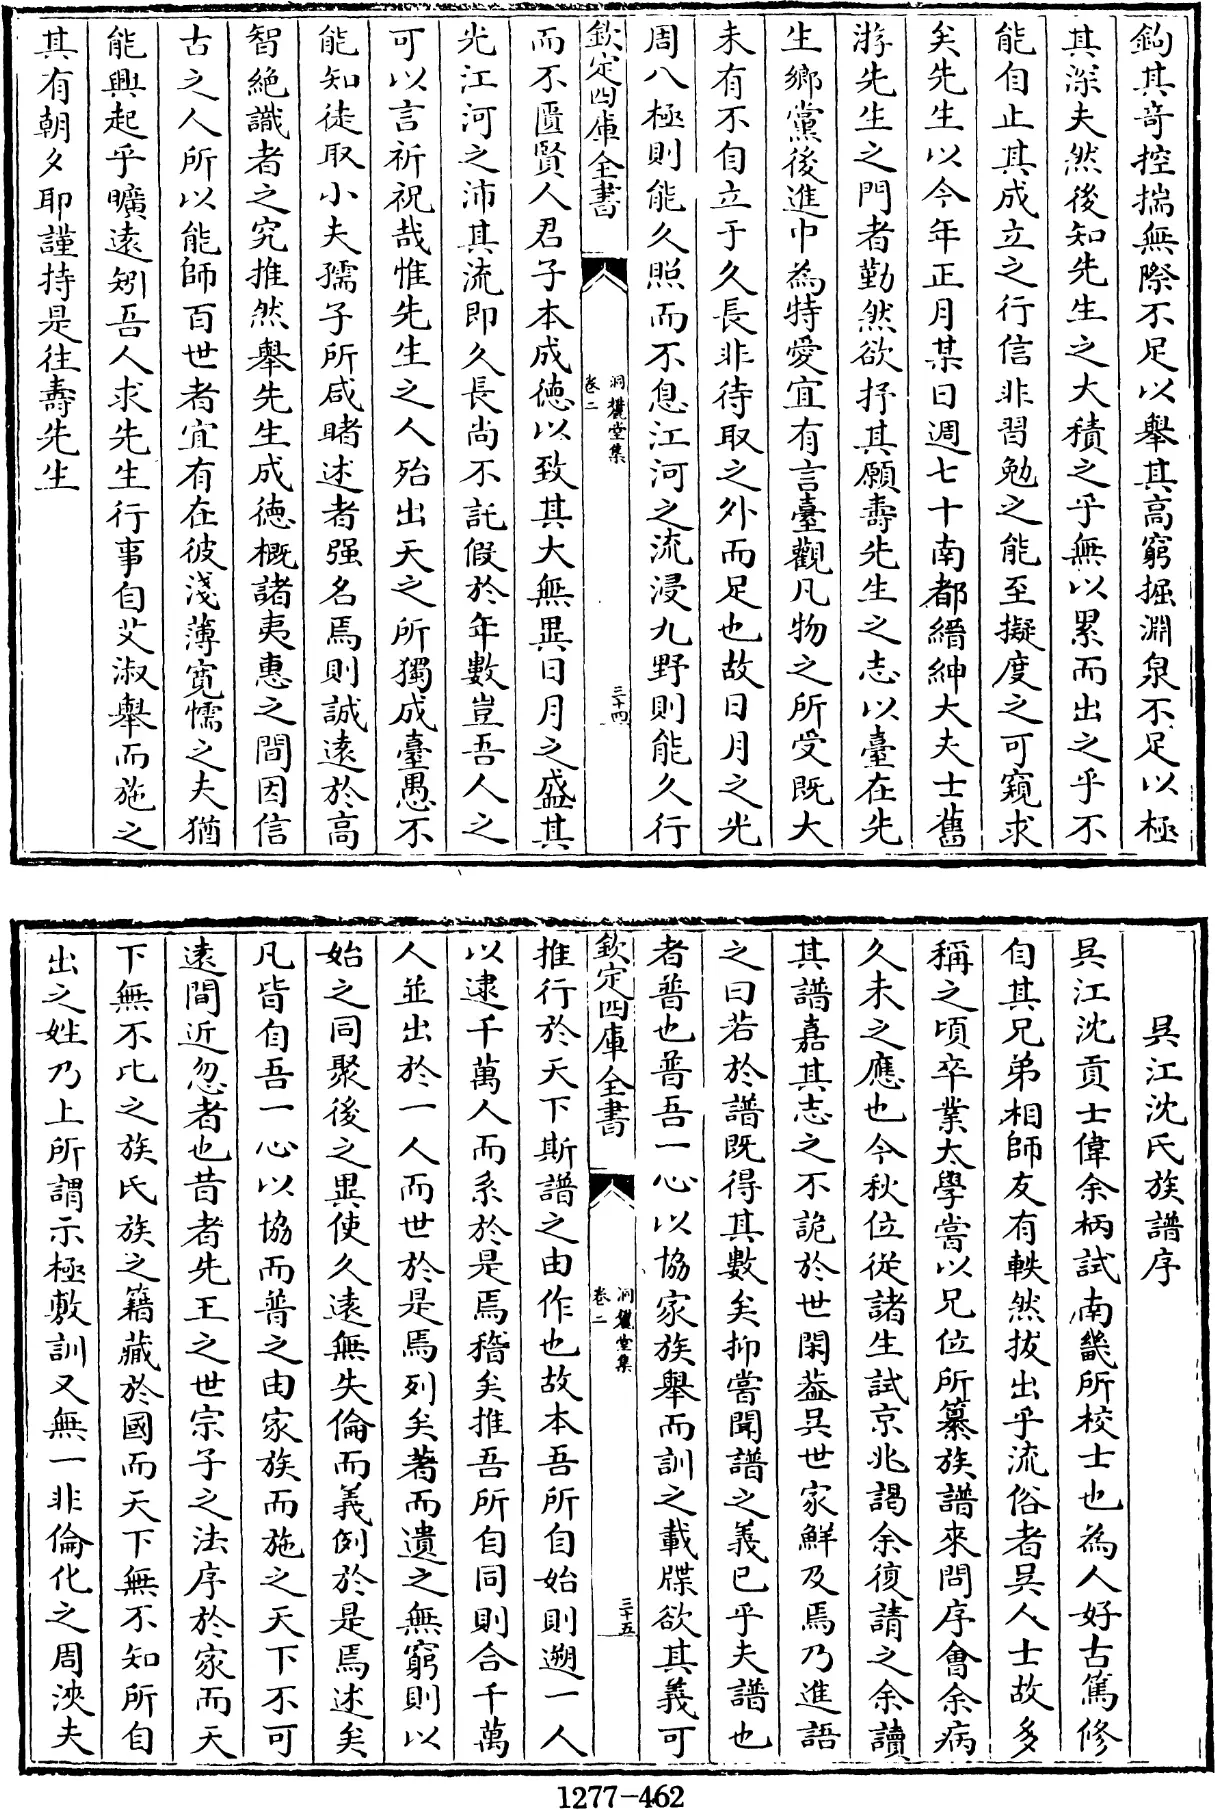 鈎其奇控揣無際不足以舉其高窮掘淵泉不足以極
其深夫然後知先生之大積之乎無以累而出之乎不
能自止其成立之行信非習勉之能至擬度之可窺求
矣先生以今年正月某日週七十南都縉紳大夫士舊
游先生之門者勤然欲抒其願壽先生之志以臺在先
生鄉黨後進巾為特愛宜有言臺觀凡物之所受既大
未有不自立于久長非待取之外而足也故日月之光
周八極則能久照而不息江河之流浸九野則能久行
欽定四庫全書
洞麓堂集
卷二
三十四
而不匱賢人君子本成德以致其大無異日月之盛其
光江河之沛其流即久長尚不託假於年數豈吾人之
可以言祈祝哉惟先生之人殆出天之所獨成臺愚不
能知徒取小夫孺子所咸睹述者强名焉則誠遠於高
智絶識者之究推然舉先生成德概諸夷惠之間因信
古之人所以能師百世者宜有在彼淺薄寬懦之夫猶
能興起乎曠遠矧吾人求先生行事自艾淑舉而施之
其有朝夕耶謹持是往壽先生
吳江沈氏族譜序
吳江沈貢士偉余柄試南畿所校士也為人好古篤修
自其兄弟相師友有軼然拔出乎流俗者吳人士故多
稱之頃卒業太學嘗以兄位所纂族譜來問序會余病
久未之應也今秋位從諸生試京兆謁余復請之余讀
其譜嘉其志之不詭於世閑葢吳世家鮮及焉乃進語
之曰若於譜既得其數矣抑嘗聞譜之義已乎夫譜也
者普也普吾一心以協家族舉而訓之載牒欲其義可
欽定四庫全書
洞麓堂集
卷二
三十五
推行於天下斯譜之由作也故本吾所自始則遡一人
以逮千萬人而系於是焉稽矣推吾所自同則合千萬
人並出於一人而世於是焉列矣著而遺之無窮則以
始之同聚後之異使久遠無失倫而義例於是焉述矣
凡皆自吾一心以協而普之由家族而施之天下不可
遠間近忽者也昔者先王之世宗子之法序於家而天
下無不比之族氏族之籍藏於國而天下無不知所自
出之姓乃上所謂示極敷訓又無一非倫化之周浹夫
1277-462